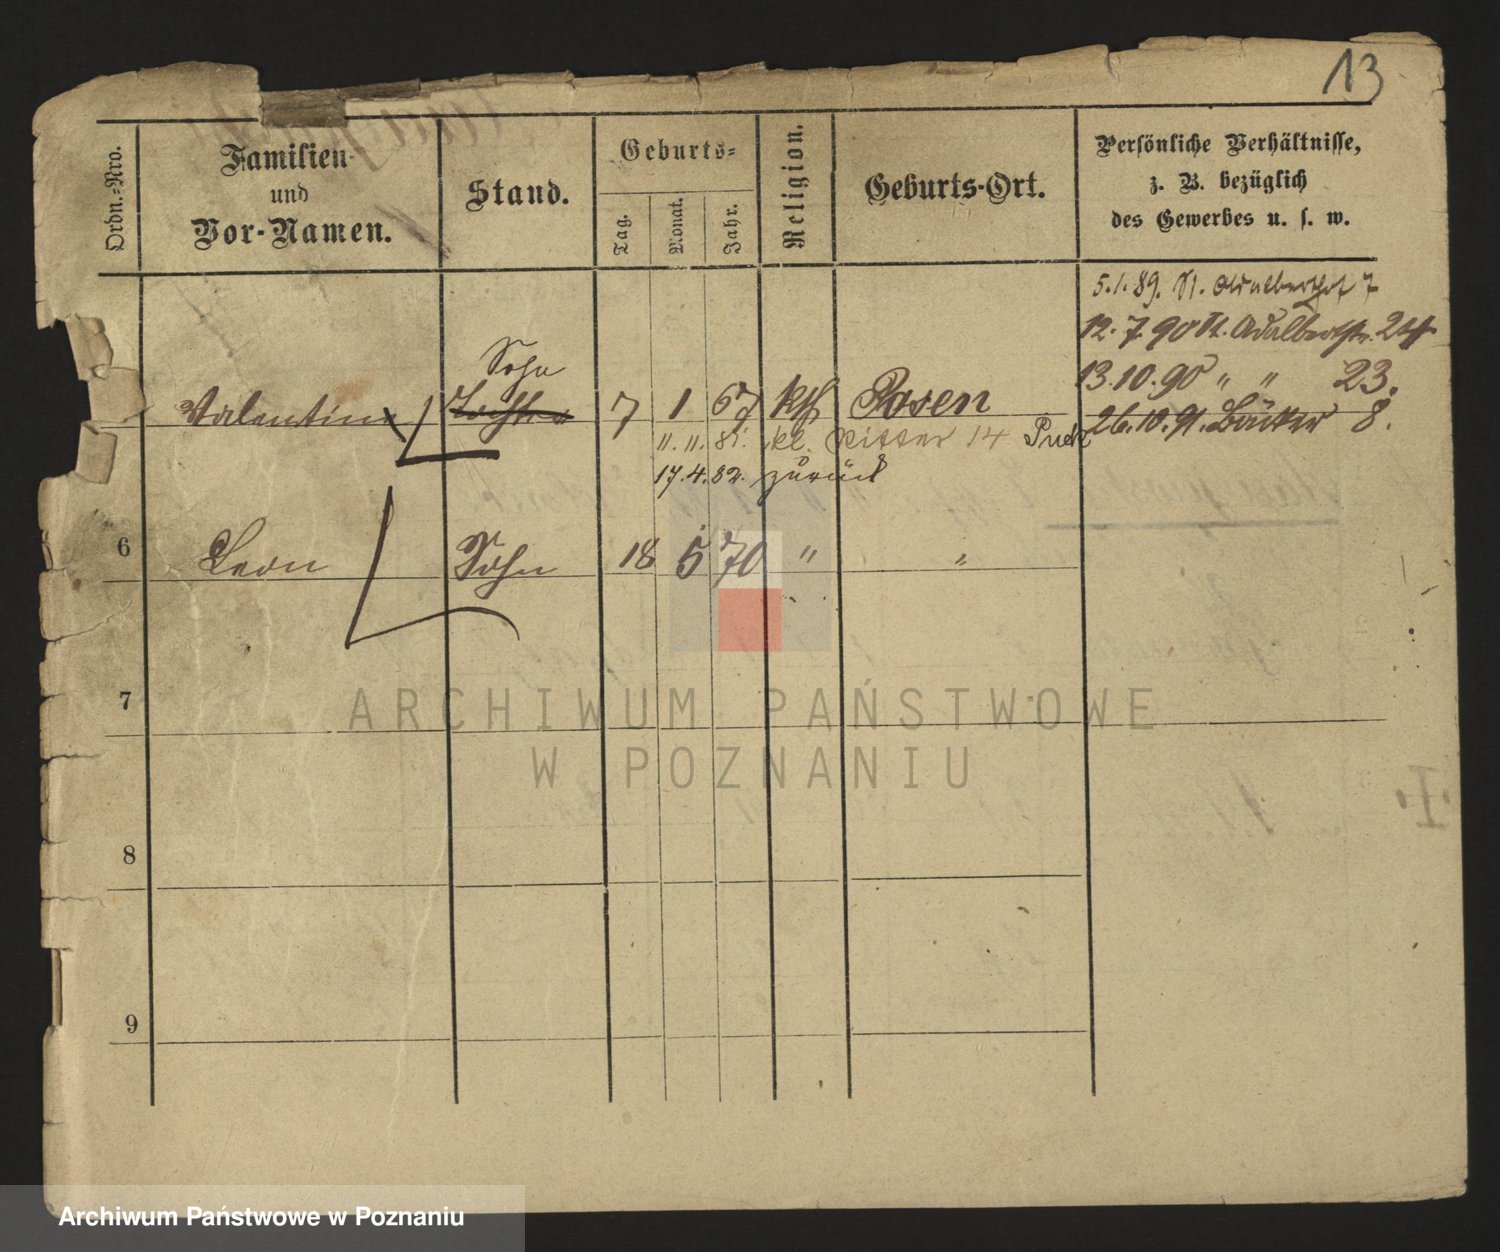 13
Ordn.-Nro.
Familien-
und
Vor-Namen.
Stand.
Geburts-
Tag.
Monat.
Jahr.
Religion.
Geburts-Ort.
Persönliche Verhältnisse,
z. B. bezüglich
des Gewerbes u. s. w.
5.1.89. St. Adalbertstr 7
12.7.90 St. Adalbertstr. 24
13.10.90 " " 23.
26.10.91. Bäcker 8.
Valentin
Sohn
Tochter
7 1 67 kth Posen
11.11.81. kl. Ritter 14
17.4.82. zurück
6 Leon Sohn 18 5 70 " "
7
8
9
ARCHIWUM PAŃSTWOWE
W POZNANIU
Archiwum Państwowe w Poznaniu